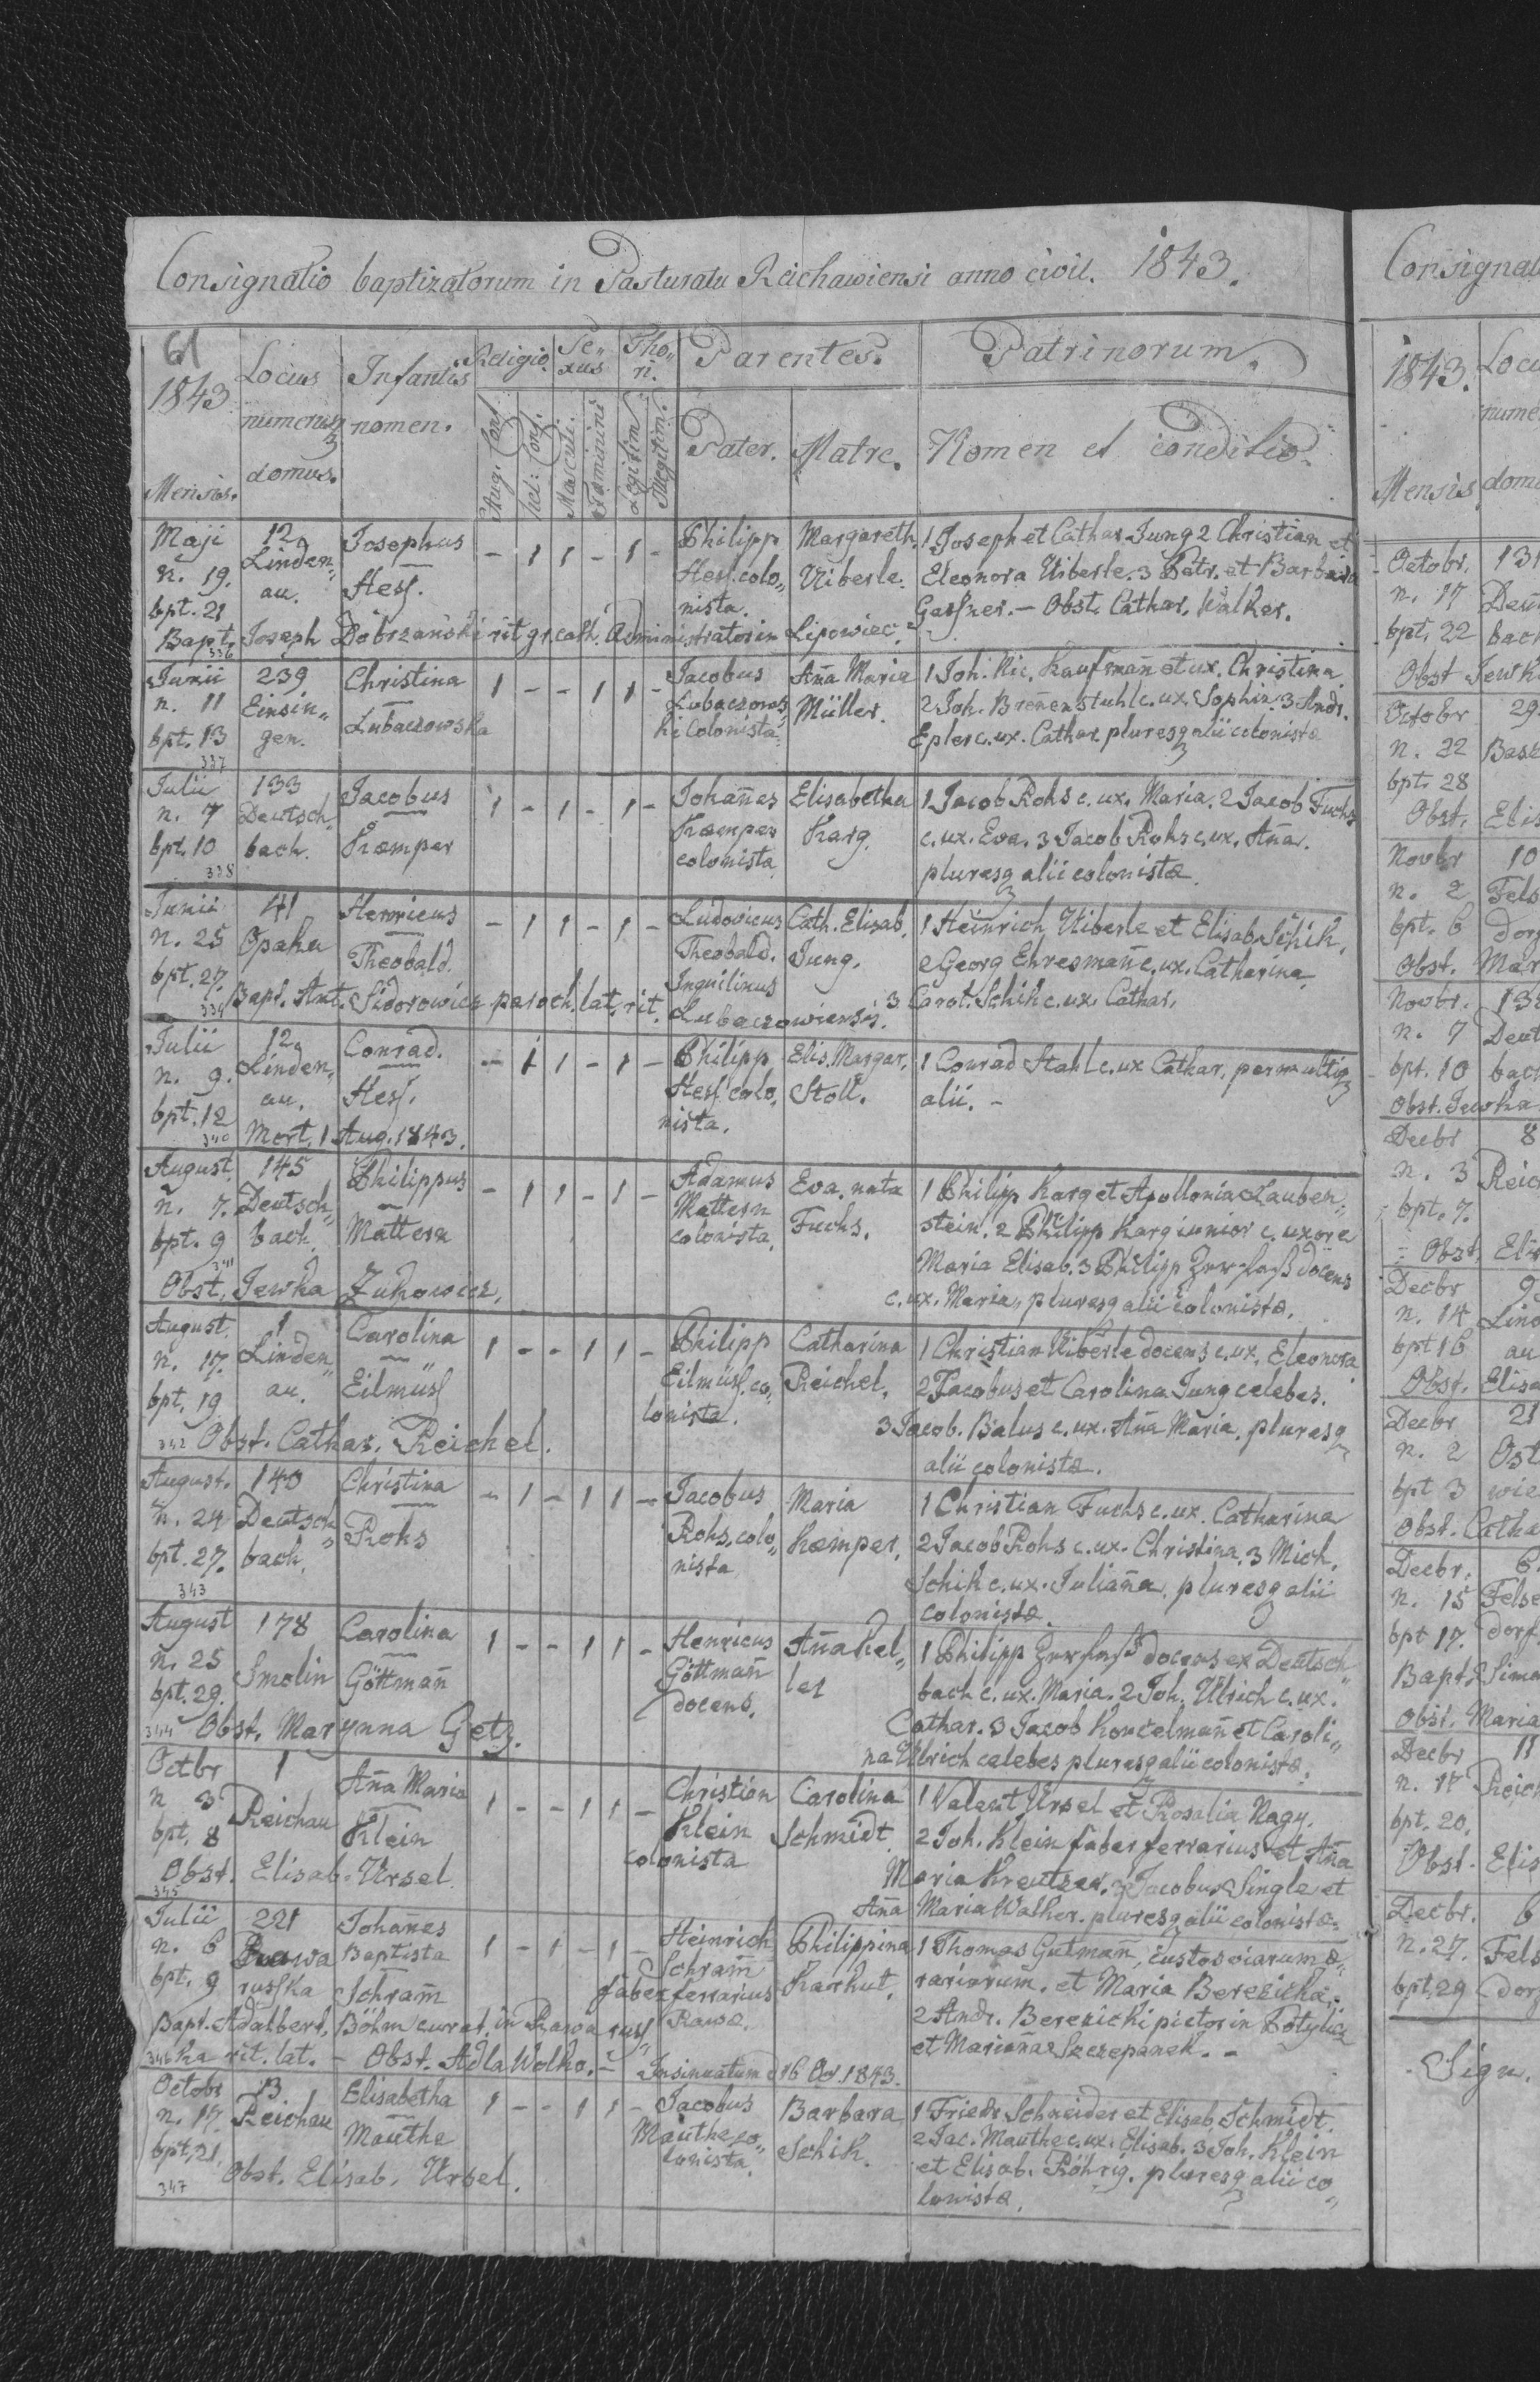 Consignatio baptizatorum in Pasturatu Reichawiensi anno civil. 1843.
61
1843
Mensis.
Locus numerusq domus.
Infantis nomen.
Religio.
Aug. Conf.
hel: Conf.
Se„xus
Masculi.
Feminini
Tho„ri.
Legitim
Illegitim.
Parentes.
Pater.
Matre.
Patrinorum.
Nomen et conditio.
Maji
n. 19.
bpt. 21
12
Linden„
au.
Josephus
Hess.
- 1 1 - 1 -
Philipp
Hess. colo„
nista.
Margareth.
Uiberle.
1 Joseph et Cathar. Jung 2 Christian et
Eleonora Uiberle. 3 Petr. et Barbara
Gassner. – Obst. Cathar. Walker.
Bapt. Joseph Dobrzański rit. gr. cath. Administrator in Lipowiec.
336
Junii
n. 11
bpt. 13
239
Einsin„
gen.
Christina
Lubaczowska
1 - - 1 1 -
Jacobus
Lubaczows„
ki Colonista
Aña Maria
Müller.
1 Joh. Nic. Kaufmañ et ux. Christina.
2 Joh. Breñenstuhl c. ux. Sophia. 3 Andr.
Epler c. ux. Cathar. pluresq alii colonistæ
337
Julii
n. 7
bpt. 10
133
Deutsch„
bach.
Jacobus
Kæmper
1 - 1 - 1 -
Johañes
Kæmper
colonista
Elisabetha
Karg.
1 Jacob Rohs c. ux. Maria. 2 Jacob Fuchs
c. ux. Eva. 3 Jacob Rohs c. ux. Aña.
pluresq alii colonistæ.
338
Junii
n. 25
bpt. 27.
41
Opaka
Henricus
Theobald.
- 1 1 - 1 -
Ludovicus
Theobald.
Inquilinus
Lubaczowiensis.
Cath. Elisab.
Jung.
1 Heinrich Uiberle et Elisab. Schik.
2 Georg Ehresmañ c. ux. Catharina
3 Carol. Schik c. ux. Cathar.
339 Bapt. Ant. Sidorowicz paroch. lat. rit.
Julii
n. 9.
bpt. 12
12
Linden„
au.
Conrad.
Hess.
- 1 1 - 1 -
Philipp
Hess colo„
nista.
Elis. Margar.
Stoll.
1 Conrad Stahl c. ux Cathar. permultiq
alii. –
340 Mort. 1 Aug. 1843.
August.
n. 7.
bpt. 9
145
Deutsch„
bach
Philippus
Mattern
- 1 1 - 1 -
Adamus
Mattern
colonista.
Eva. nata
Fuchs.
1 Philipp Karg et Apollonia Lauben„
stein. 2 Philipp Karg junior c. uxore
Maria Elisab. 3 Philipp Zerfaß docens
c. ux. Maria, pluresq alii colonistæ.
341
Obst. Jewka Zukowicz.
August.
n. 17.
bpt. 19
1
Linden„
au.
Carolina
Eilmüss
1 - - 1 1 -
Philipp
Eilmüss. co„
lonista.
Catharina
Reichel.
1 Christian Uiberle docens c. ux. Eleonora
2 Jacobus et Carolina Jung celebes.
3 Jacob. Balus c. ux. Aña Maria. pluresq
alii colonistæ.
342 Obst. Cathar. Reichel.
August.
n. 24
bpt. 27.
140
Deutsch„
bach.
Christina
Rohs
- 1 - 1 1 -
Jacobus
Rohs. colo„
nista
Maria
Kæmper.
1 Christian Fuchs c. ux. Catharina
2 Jacob Rohs c. ux. Christina. 3 Mich.
Schik c. ux. Juliaña. pluresq alii
colonistæ.
343
August
n. 25
bpt. 29.
178
Smolin
Carolina
Göttmañ
1 - - 1 1 -
Henricus
Göttmañ
docens.
Aña Kel„
ler
1 Philipp Zerfaß docens ex Deutsch„
bach c. ux. Maria. 2 Joh. Ulrich c. ux.
Cathar. 3 Jacob Konzelmañ et Caroli„
na Ulrich celebes pluresq alii colonistæ.
344 Obst. Marynna Getz.
Octbr
n 3
bpt. 8
1
Reichau
Aña Maria
Klein
1 - - 1 1 -
Christian
Klein
colonista
Carolina
Schmidt
1 Valent Ursel et Rosalia Nagy.
2 Joh. Klein faber ferrarius et Aña
Maria Kreutzer. 3 Jacobus Single et
Aña Maria Walker. pluresq alii colonistæ.
Obst. Elisab. Ursel.
345
Julii
n. 6
bpt. 9
221
Rawa
russka
Johañes
Baptista
Schram̄
1 - 1 - 1 -
Heinrich
Schram̄
faber ferrarius
Rawæ.
Philippina
Karhut.
1 Thomas Gutmañ, custos viarum æ„
rariarum. et Maria Berezicka.
2 Andr. Berezicki pictor in Potylicz
et Mariaña Szczepanek. –
Bapt. Adalbert. Böhm curat. in Rawa russ„
346 ka rit. lat. – Obst. Adla Wolko. – Insinuatum d 16 Oct 1843.
Octobr
n. 17
bpt. 21.
13
Reichau
Elisabetha
Mauthe
1 - - 1 1 -
Jacobus
Mauthe co„
lonista.
Barbara
Schik.
1 Friedr Schneider et Elisab. Schmidt.
2 Jac. Mauthe c. ux. Elisab. 3 Joh. Klein
et Elisab. Röhrig. pluresq alii co„
lonistæ.
347 Obst. Elisab. Ursel.
Consignat
1843.
Mensis
Locu
nume
domu
Octobr. 131
n. 17 Deu
bpt. 22 bach
Obst Jewk
Octobr 29
n. 22
bpt. 28
Obst. Elis
Novbr 10
n. 2 Fels
bpt. 6 dor
Obst. Mar
Novbr. 13
n. 7 Deut
bpt. 10 bach
Obst. Jewka
Decbr 8
n. 3 Reic
bpt. 7.
Obst. Eli
Decbr 9
n. 14 Lind
bpt 16 au
Obst. Elisa
Decbr 21
n. 2 Ost
bpt 3 wie
Obst. Catha
Decbr. 6
n. 15 Felse
bpt 17. dorf
Bapt. Sim
Obst. Maria
Decbr 11
n. 17 Reich
bpt. 20.
Obst. Elis
Decbr. 6
n. 27. Fels
bpt. 29 dor
Sign.